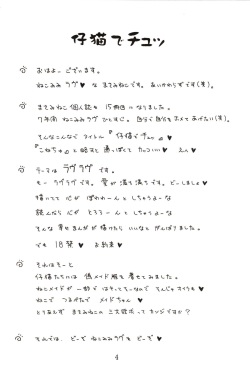 仔猫でチュッ
☆ おはよーございます。
ねこみみラブ♥な まさみねこです。あいかわらずです(笑)。
☆ まさみねこ個人誌も 15冊目になりました。
7年間 ねこみみラブひとすじ。自分で自分をホメてあげたい(笑)。
そんなこんなで タイトル『仔猫でチュッ』♥
『こねちゅ』と略すと 湯っぽくて カッコいい♥ えへ♥
☆ テーマは ラブラブ です。
もー ラブラブです。愛が 満ち満ちです。どーしましょ♥
描いてて 心が ぽわわーんと しちゃうよーな
読んだら 心が とろろーんと しちゃうよーな
そんな幸せまんがが 描けたら いいなと がんばりました。
でも 18禁♥ お約束♥
☆ それはそーと
仔猫たちには 偽メイド服を 着せてみました。
ねこメイドが 一部では はやってそーなので てんじゃオイラも♥
ねこで つるぺたで メイドちゃん
とりあえず まさみねこの 三大欲求って カンジですか?
☆ それでは、どーぞ ねこみみラブを どーぞ♥
4